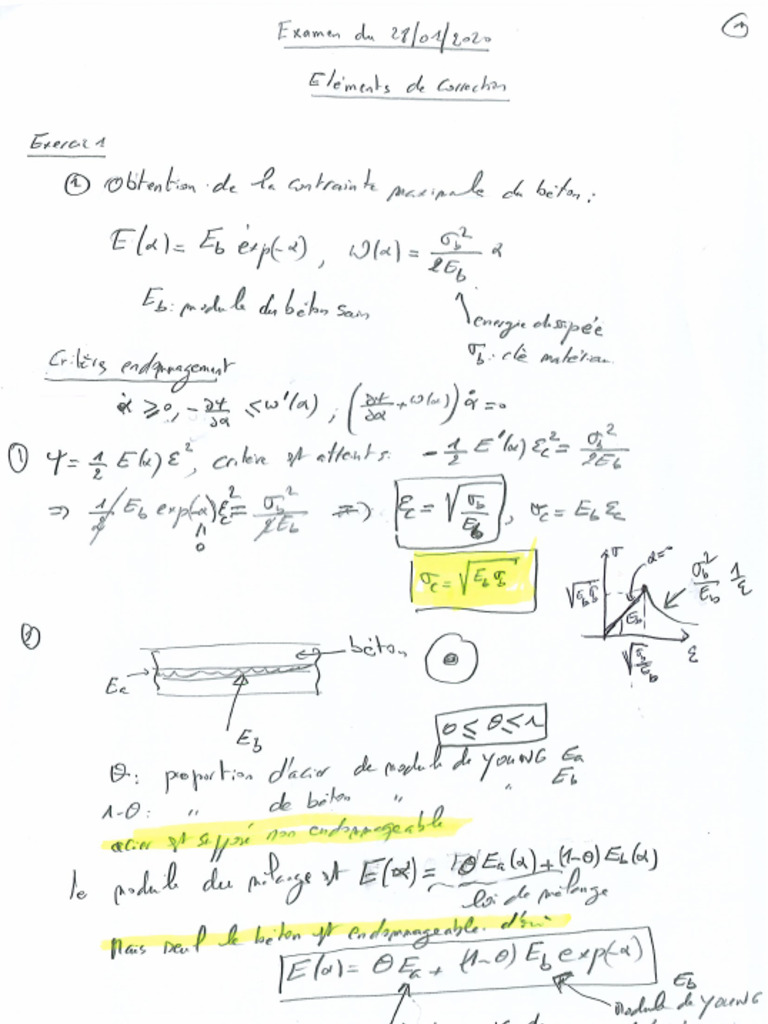 ①
Examen du 28/01/2020
Eléments de correction
Exercice 1
① Obtention de la contrainte maximale du béton :
E(α) = E_b exp(-α), ω(α) = σ_b²/2E_b α
E_b : module du béton sain
énergie dissipée
σ_b : clé matériau
Critères endommagement
α̇ ≥ 0, -∂ψ/∂α ≤ ω'(α), (∂ψ/∂α + ω'(α)) α̇ = 0
① ψ = 1/2 E(α) ε², critère est atteint si -1/2 E'(α) ε_c² = σ_b²/2E_b
⇒ 1/2 E_b exp(-α) ε_c² = σ_b²/2E_b ⇒ ε_c = √(σ_b/E_b), σ_c = E_b ε_c
0
σ_c = √(E_b σ_b)
σ
α=0
σ_b²/E_b 1/ε
√(E_b σ_b)
E_b
ε
√(σ_b/E_b)
②
béton
E_a
E_b
0 ≤ θ ≤ 1
θ : proportion d'acier de module de YOUNG E_a
1-θ : " de béton " " E_b
acier est supposé non endommageable
le module du mélange est E(α) = θ E_a(α) + (1-θ) E_b(α)
loi de mélange
Mais seul le béton est endommageable. d'où
E(α) = θ E_a + (1-θ) E_b exp(-α)
E_b
Module de YOUNG